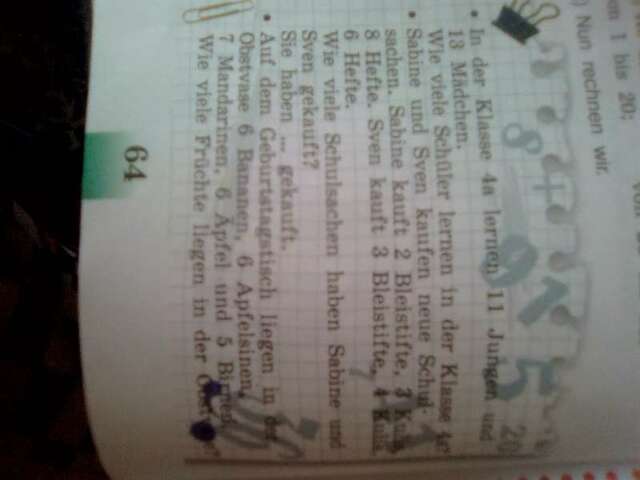 on 1 bis 20:
Nun rechnen wir.
8 4 9 1 5 20
• In der Klasse 4a lernen 11 Jungen und
13 Mädchen.
Wie viele Schüler lernen in der Klasse
• Sabine und Sven kaufen neue Schul-
sachen. Sabine kauft 2 Bleistifte, 3
8 Hefte. Sven kauft 3 Bleistifte, 4
6 Hefte.
Wie viele Schulsachen haben Sabine und
Sven gekauft?
Sie haben ... gekauft.
• Auf dem Geburtstagstisch liegen in der
Obstvase 6 Bananen, 6 Apfelsinen,
7 Mandarinen, 6 Äpfel und 5 Birnen.
Wie viele Früchte liegen in der
64